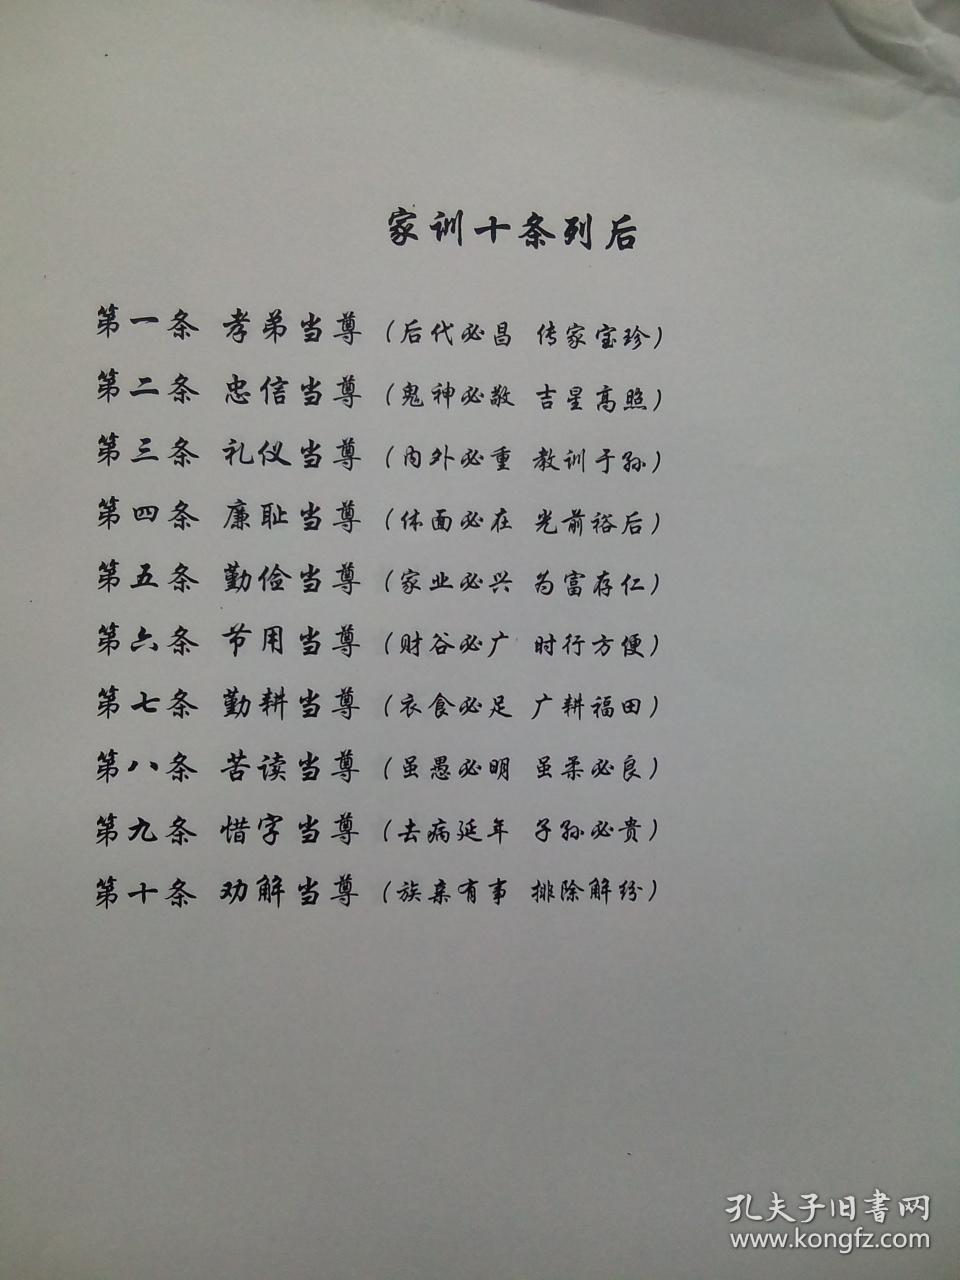 家训十条列后
第一条 孝弟当尊（后代必昌 传家宝珍）
第二条 忠信当尊（鬼神必敬 吉星高照）
第三条 礼仪当尊（内外必重 教训于孙）
第四条 廉耻当尊（体面必在 光前裕后）
第五条 勤俭当尊（家业必兴 为富存仁）
第六条 节用当尊（财谷必广 时行方便）
第七条 勤耕当尊（衣食必足 广耕福田）
第八条 苦读当尊（虽愚必明 虽柔必良）
第九条 惜字当尊（去病延年 子孙必贵）
第十条 劝解当尊（族亲有事 排除解纷）
孔夫子旧書网
www.kongfz.com